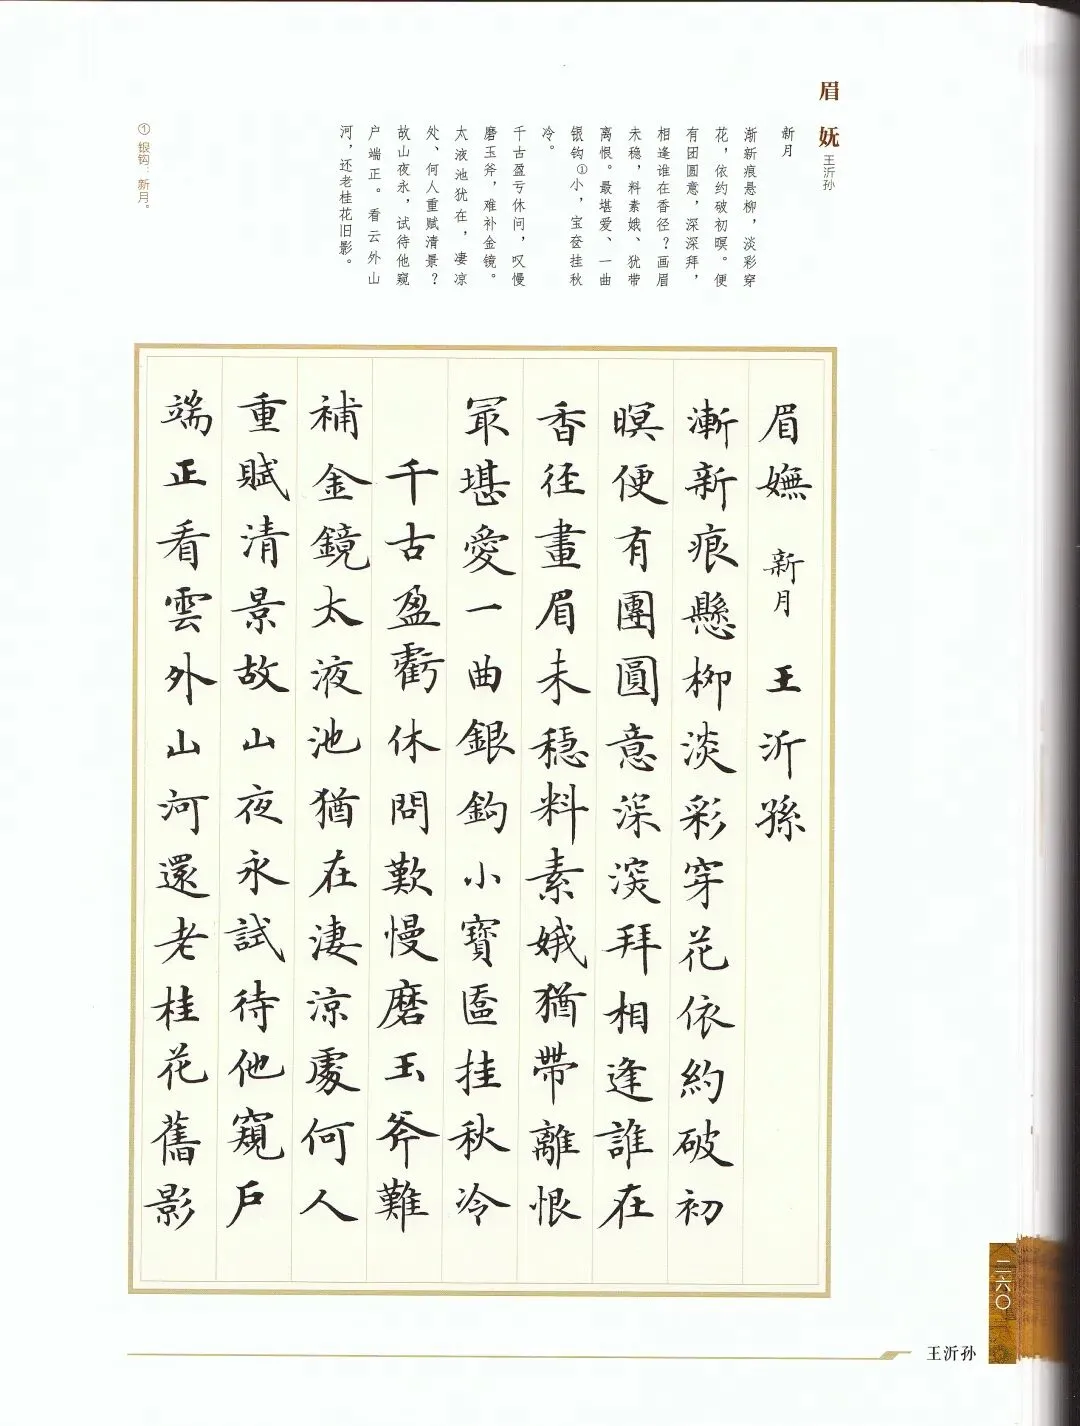 眉妩
王沂孙
新月
渐新痕悬柳，淡彩穿
花，依约破初暝。便
有团圆意，深深拜，
相逢谁在香径？画眉
未稳，料素娥、犹带
离恨。最堪爱、一曲
银钩①小，宝奁挂秋
冷。
千古盈亏休问，叹慢
磨玉斧，难补金镜。
太液池犹在，凄凉
处、何人重赋清景？
故山夜永，试待他窥
户端正。看云外山
河，还老桂花旧影。
①银钩：新月。
眉嫵 新月 王沂孫
漸新痕懸柳淡彩穿花依約破初
暝便有團圓意深深拜相逢誰在
香径畫眉未穩料素娥猶帶離恨
冣堪愛一曲銀鈎小寶匳挂秋冷
千古盈虧休問歎慢磨玉斧難
補金鏡太液池猶在淒涼處何人
重賦清景故山夜永試待他窺戶
端正看雲外山河還老桂花舊影
二六〇
王沂孙